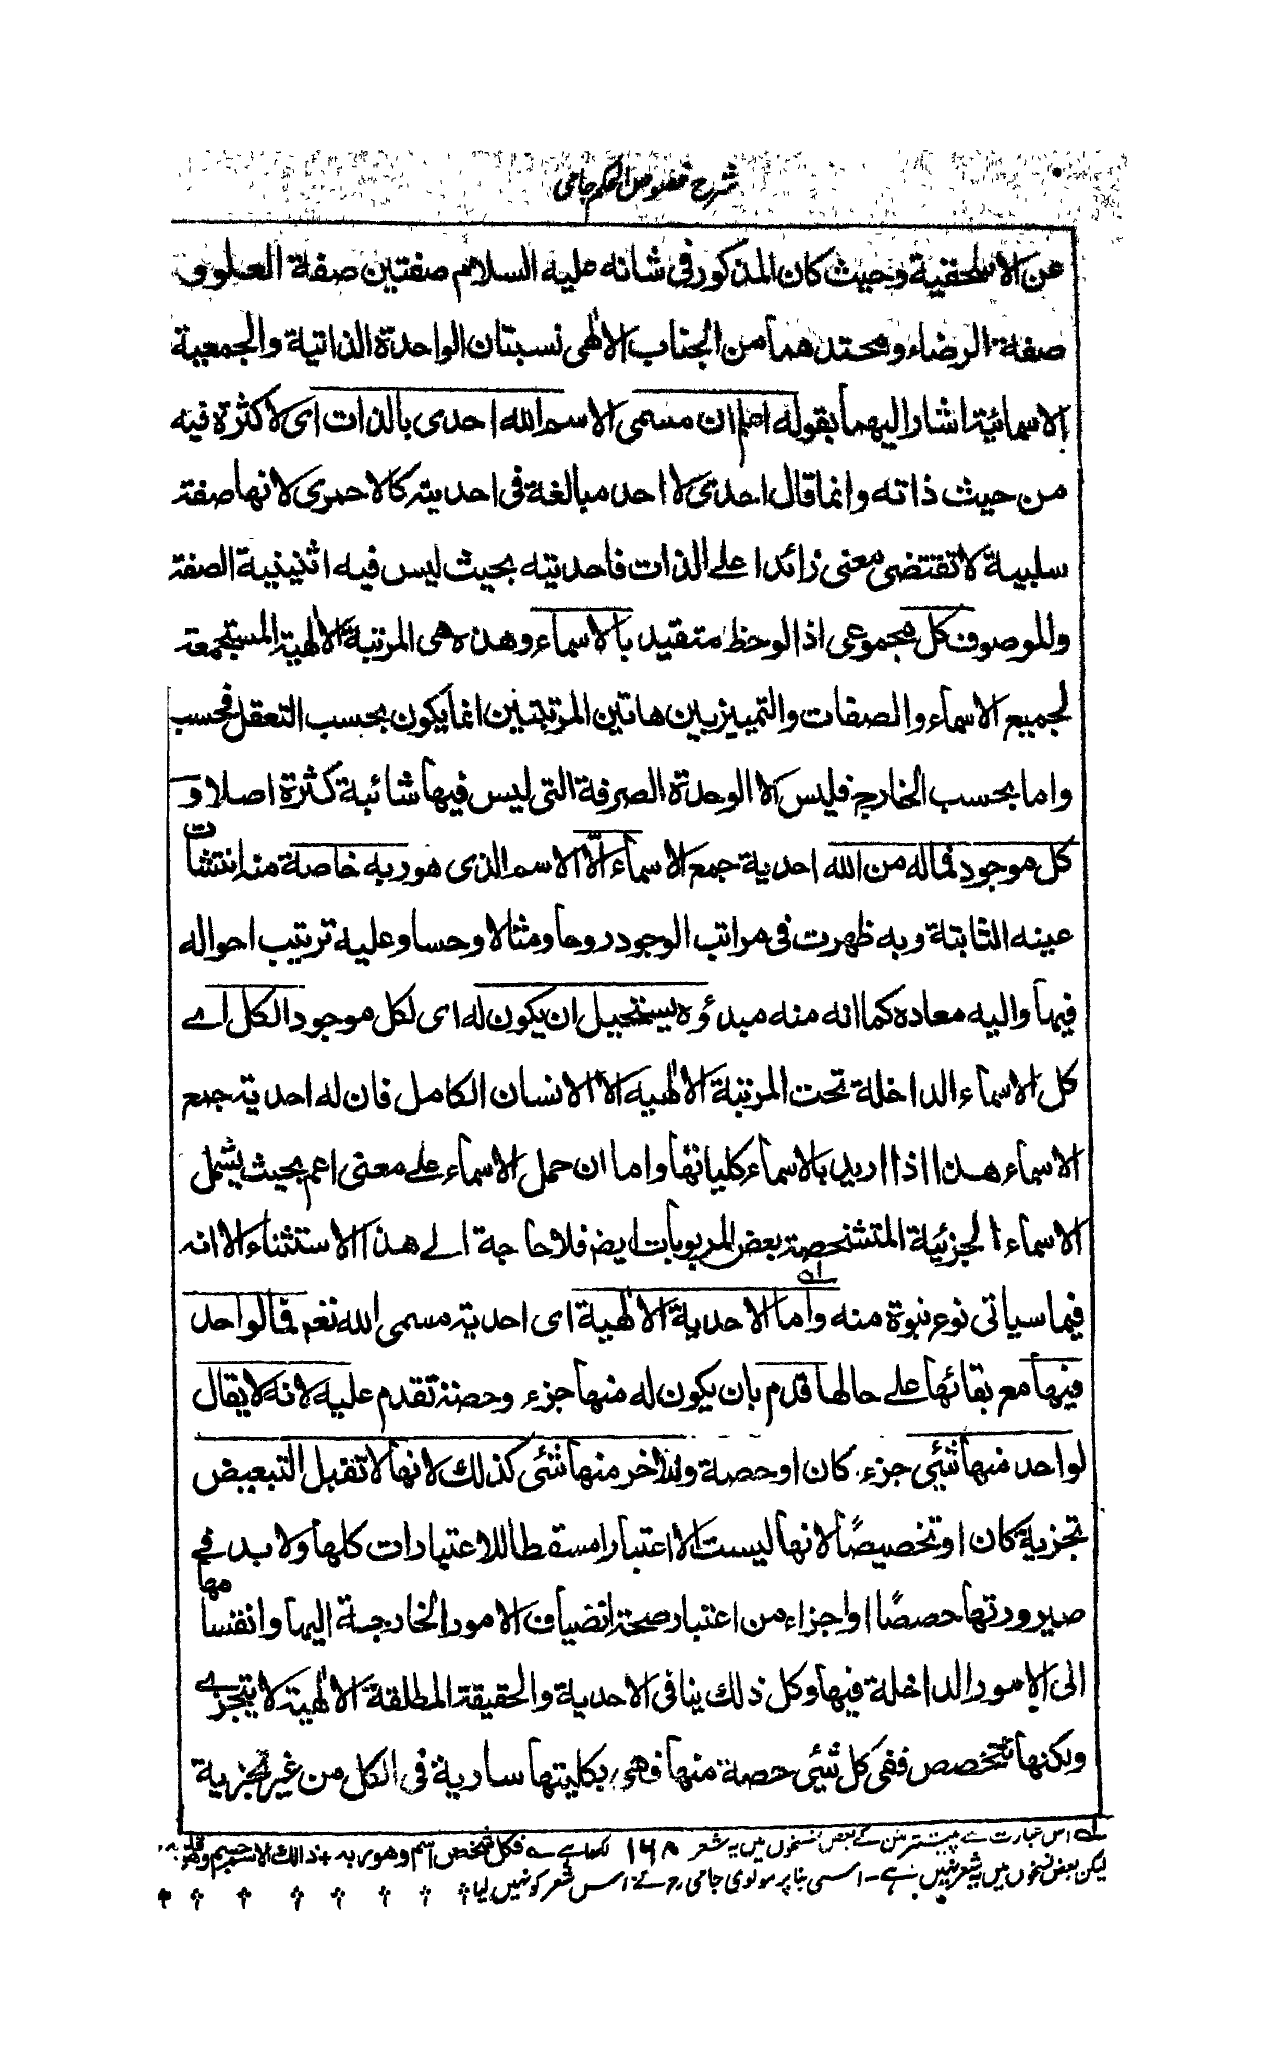 شرح فصوص الحكم جامی
عن الاسحقية وحيث كان المذكور فى شانه عليه السلام صفتين صفة العلو و
صفة الرضاء ومحتدهما من الجناب الالٰهى نسبتان الواحدة الذاتية والجمعية
الاسمائية اشار اليهما بقوله اعلم ان مسمى الاسم الله احدى بالذات اى لا كثرة فيه
من حيث ذاته وانما قال احدى لا احد مبالغة فى احديته كالاحمرى لانها صفة
سلبية لا تقتضى معنى زائدا على الذات فاحديته بحيث ليس فيه اثنينية الصفة
وللموصوف كل مجموعى اذا لوحظ متقيد بالاسماء وهذه هى المرتبة الالٰهية المستجمعة
لجميع الاسماء والصفات والتمييز بين هاتين المرتبتين انما يكون بحسب التعقل فحسب
واما بحسب الخارج فليس الا الوحدة الصرفة التى ليس فيها شائبة كثرة اصلا و
كل موجود فماله من الله احدية جمع الاسماء الّا الاسم الذى هو ربه خاصة منه انتشات
عينه الثابتة وبه ظهرت فى مراتب الوجود روحا ومثالا وحسا وعليه ترتيب احواله
فيها واليه معاده كما انه منه مبدؤه يستحيل ان يكون له اى لكل موجود الكل اے
كل الاسماء الداخلة تحت المرتبة الالٰهية الا الانسان الكامل فان له احدية جمع
الاسماء هذا اذا اريد بالاسماء كلياتها واما ان حمل الاسماء على معنى اعم بحيث يشمل
الاسماء الجزئية المتشخصة بعض المربوبات ايض فلا حاجة الى هذا الاستثناء الا انه
فيما سياتى نوع نبوة منه واما الاحدية الالٰهية اى احدية مسمى الله نغم فما لواحد
فيها مع بقائها على حالها قدم بان يكون له منها جزء وحصة تقدم عليه لانه لا يقال
لواحد منها شئى جزء كان او حصة ولاٰخر منها شئى كذلك لانها لا تقبل التبعيض
تجزية كان او تخصيصًا لانها ليست الا اعتبارا مسقطا للاعتبارات كلها ولا بد فى
صيرورتها حصصًا او اجزاء من اعتبار صحة انضياف الامور الخارجة اليها وانقسامها
الى الامور الداخلة فيها وكل ذلك ينافى الاحدية والحقيقة المطلقة الالٰهية لا يتجزى
ولكنها تتخصص ففى كل شئى حصة منها فهى بكليتها سارية فى الكل من غير تجزية
لہ اس عبارت سے پیشتر متن کے بعض نسخوں میں یہ شعر ١٦٨ لکھا ہے ے فكل شخص اسم وهو ربه + ذالك الاسم جسم وهو قلبه
لیکن بعض نسخوں میں یہ شعر نہیں ہے۔ اسی بنا پر مولوی جامی رہ نے اس شعر کو نہیں لیا